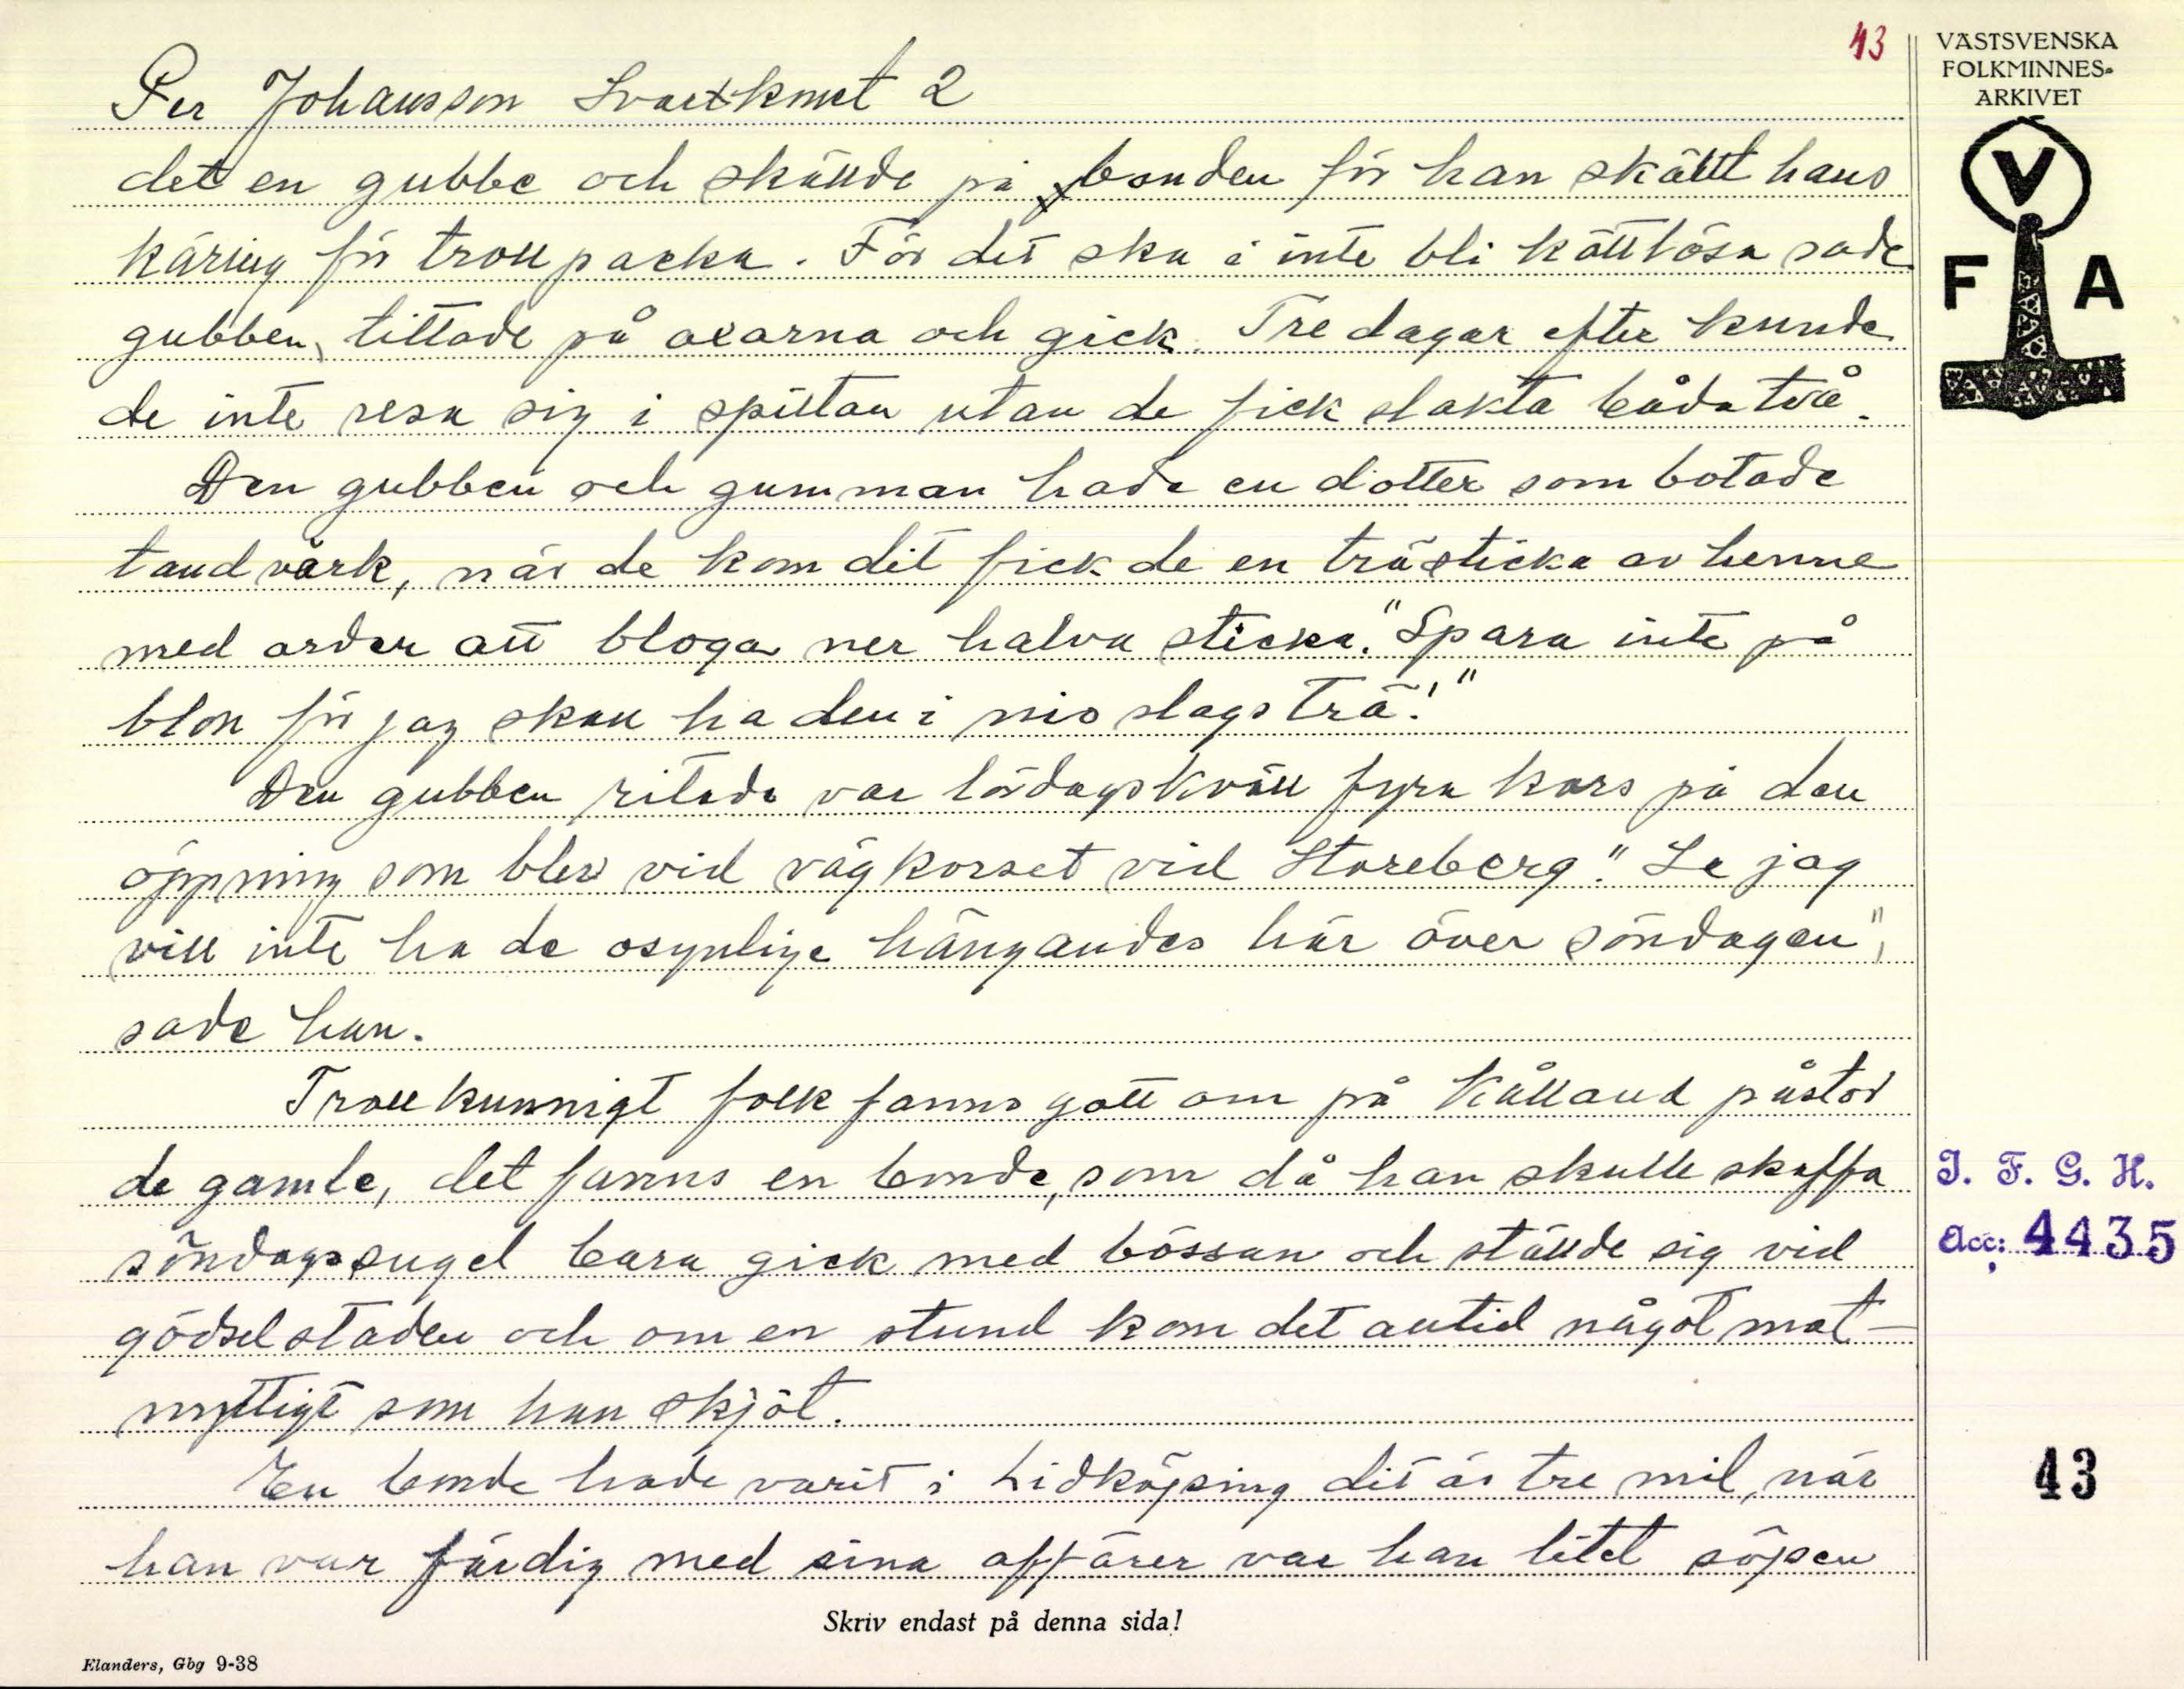 43
VÄSTSVENSKA
FOLKMINNES-
ARKIVET
V
F A
Per Johansson Svartkonst 2
det en gubbe och skällde på bonden för han skällt hans
käring för trollpacka. För det ska i inte bli köttlösa sade
gubben, tittade på oxarna och gick. Tre dagar efter kunde
de inte resa sig i spiltan utan de fick slakta båda två.
Den gubben och gumman hade en dotter som botade
tandvärk, när de kom dit fick de en trästicka av henne
med order att bloga ner halva sticka. "Spara inte på
blon för jag skall ha den i nio slags trä!"
Den gubben ritade var lördagskväll fyra kors på den
öppning som blev vid vägkorset vid Storeberg. "Se jag
vill inte ha de osynlige hängandes här över söndagen",
sade han.
Trollkunnigt folk fanns gott om på Kålland påstod
de gamle, det fanns en bonde, som då han skulle skaffa
söndagssugel bara gick med bössan och ställde sig vid
gödselstaden och om en stund kom det alltid något mat-
nyttigt som han skjöt.
En bonde hade varit i Lidköping dit är tre mil, när
han var färdig med sina affärer var han litet söpen
J. F. G. H.
Acc: 4435
43
Skriv endast på denna sida!
Elanders, Gbg 9-38